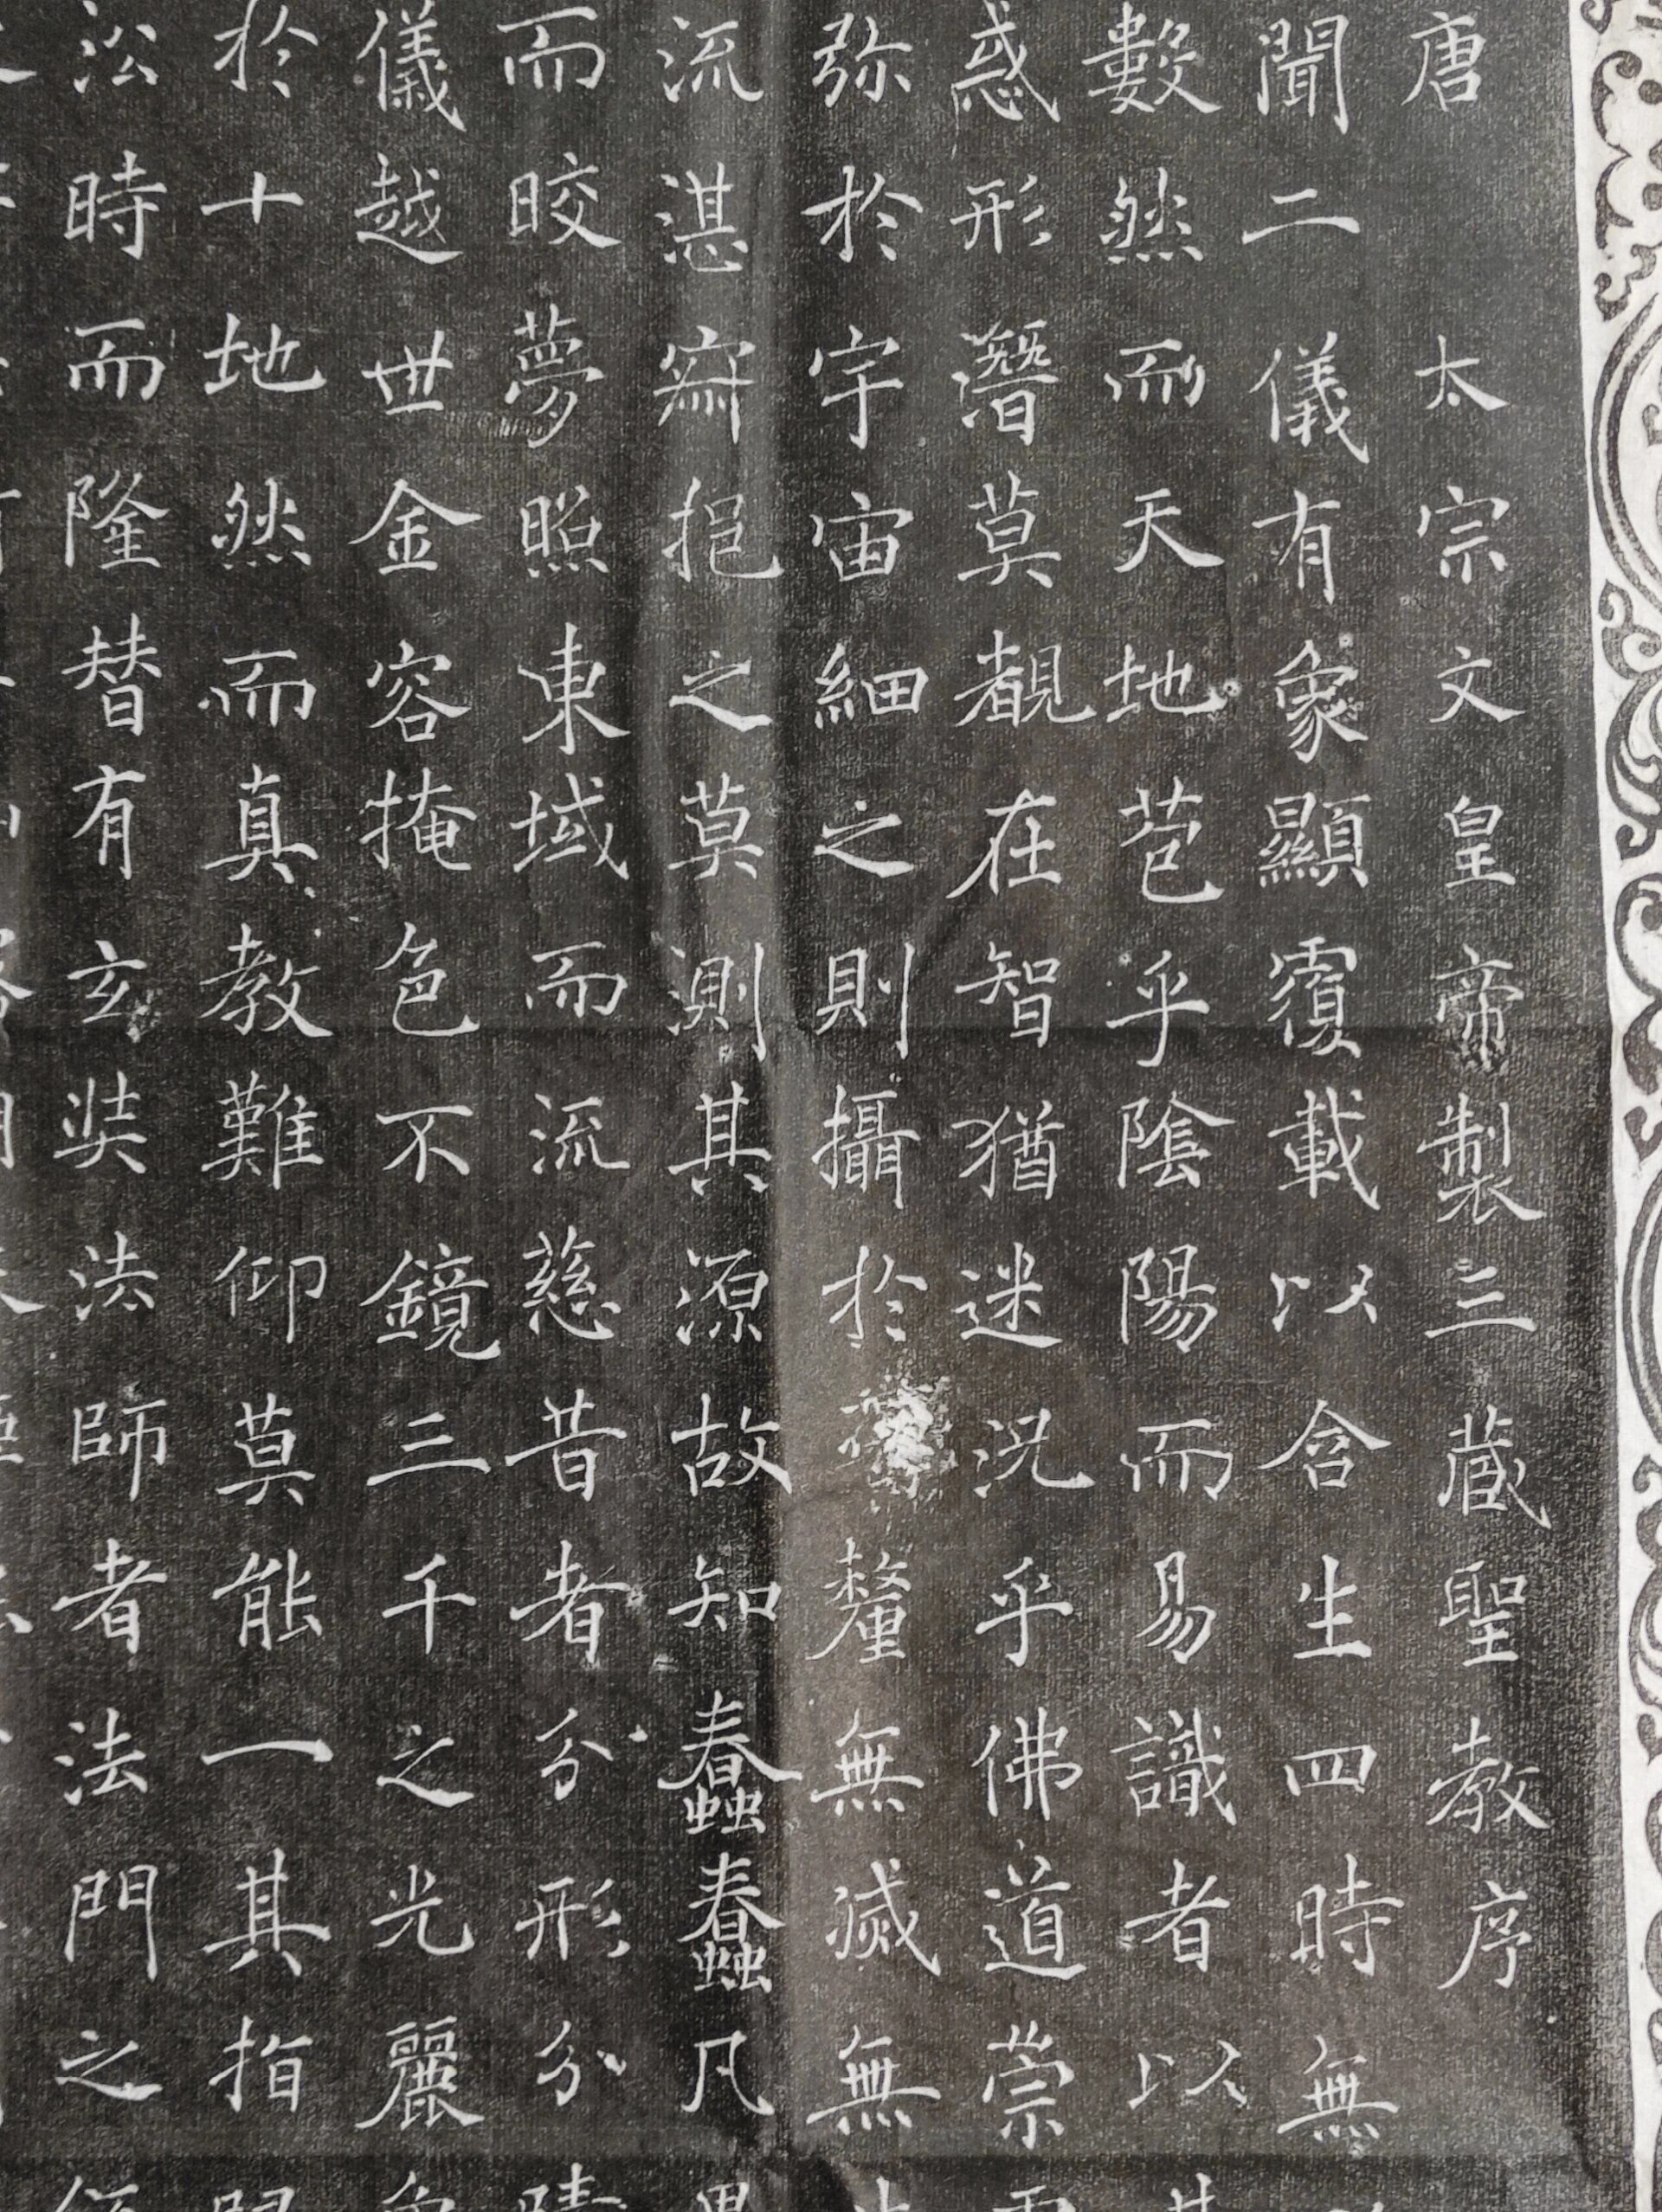 唐太宗文皇帝製三藏聖教序
聞二儀有象顯覆載以含生四時無
數然而天地苞乎陰陽而易識者以
惑形潛莫覩在智猶迷況乎佛道崇
弥於宇宙細之則攝於釐無滅無
流湛寂挹之莫測其源故知蠢蠢凡
而皎夢照東域而流慈昔者分形分
儀越世金容掩色不鏡三千之光麗
於十地然而真教難仰莫能一其指
訟時而隆替有玄奘法師者法門之